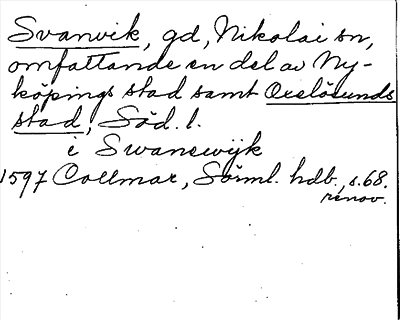 Svanvik, gd, Nikolai sn,
omfattande en del av Ny-
köpings stad samt Oxelösunds
stad, Söd. l.
i Swanewijk
1597 Collmar, Sörml. hdb. s. 68.
renov.